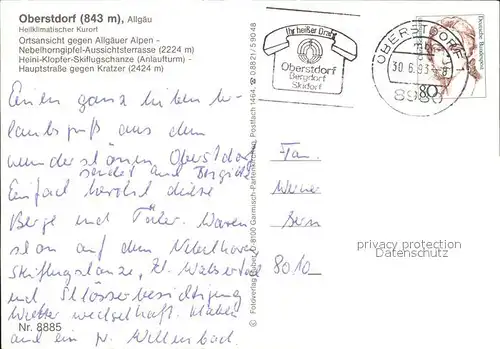 Oberstdorf (843 m), Allgäu
Heilklimatischer Kurort
Ortsansicht gegen Allgäuer Alpen -
Nebelhorngipfel-Aussichtsterrasse (2224 m)
Heini-Klopfer-Skiflugschanze (Anlaufturm) -
Hauptstraße gegen Kratzer (2424 m)
Ihr heißer Draht
Oberstdorf
Bergdorf
Skidorf
OBERSTDORF 1
30.6.93
8980
80
Deutsche Bundespost
Einen ganz lieben Ur-
laubsgruß aus dem
wunderschönen Oberstdorf
sendet Brigitte
Einfach herrlich diese
Berge und Täler. Waren
schon auf dem Nebelhorn
Skiflugschanze, Kl. Walsertal
und Schlösserbesichtigung
Wetter wechselhaft.
und ein
Fam.
Werner
Bern
8010
privacy protection
Datenschutz
© Fotoverlag Huber, D-8100 Garmisch-Partenkirchen, Postfach 1464, ☎ 08821/59048
Nr. 8885